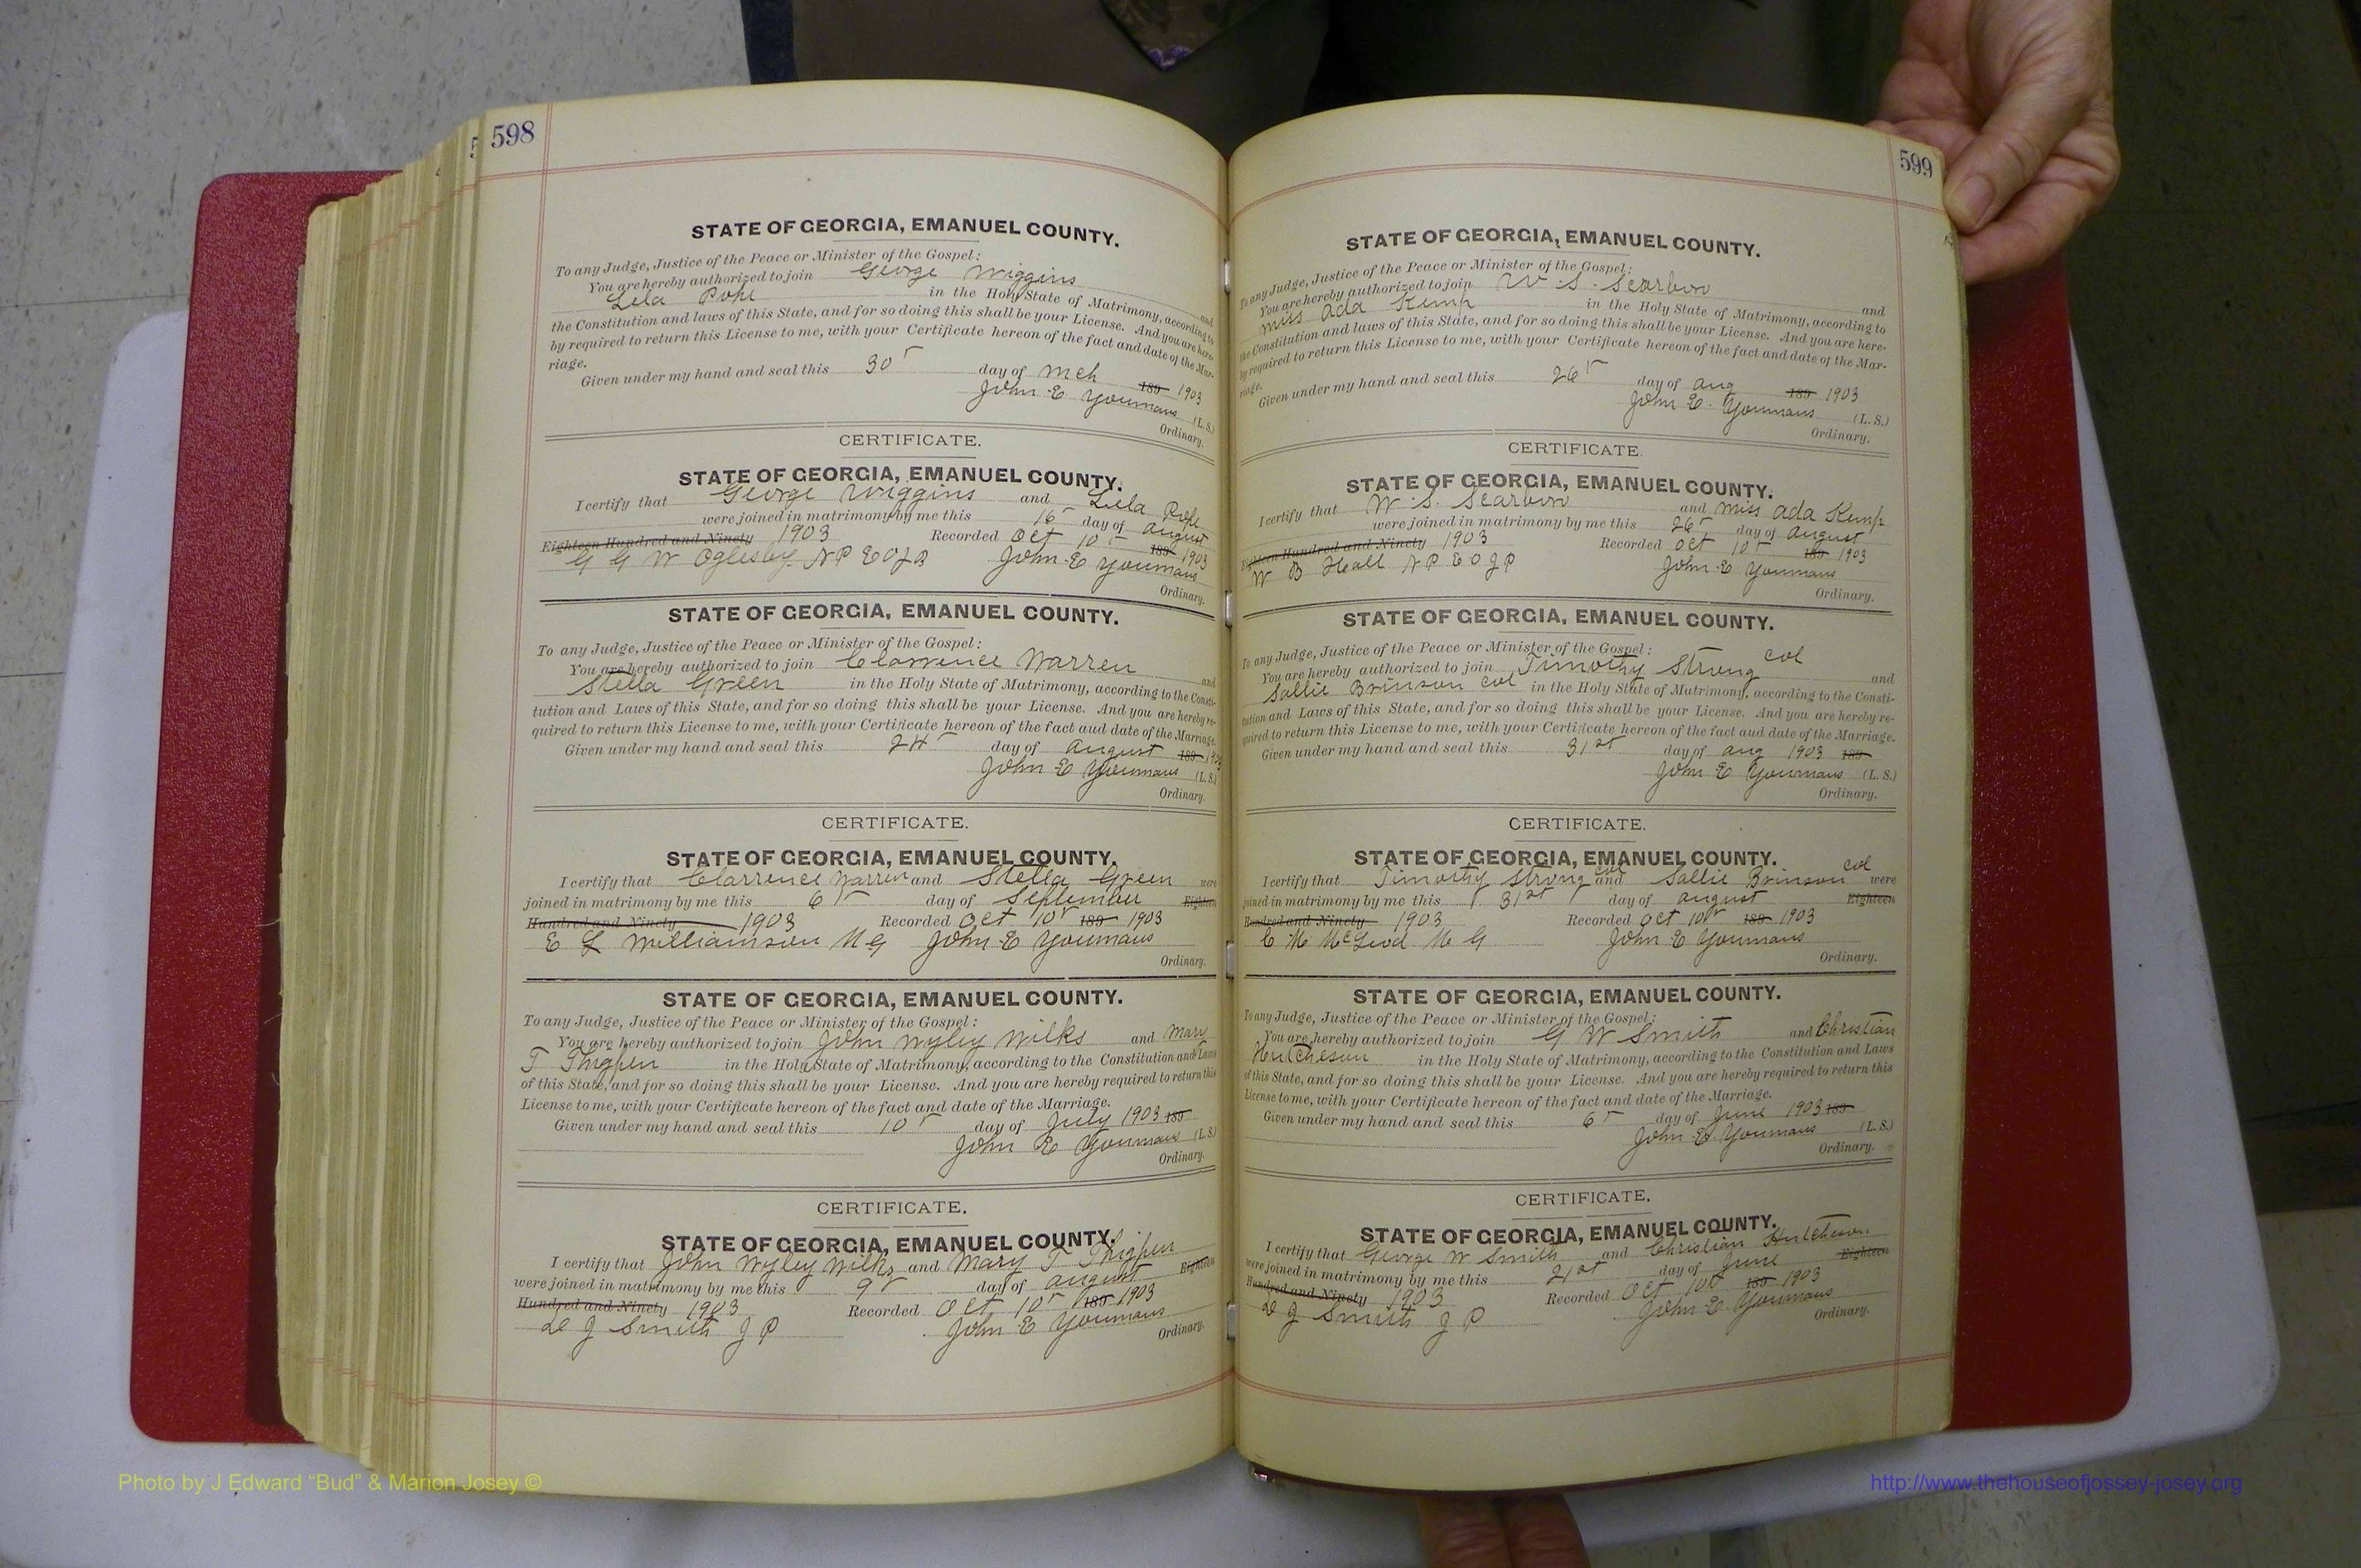 598
STATE OF GEORGIA, EMANUEL COUNTY.
To any Judge, Justice of the Peace or Minister of the Gospel:
You are hereby authorized to join George Wiggins and
Lela Pope in the Holy State of Matrimony, according to
the Constitution and laws of this State, and for so doing this shall be your License. And you are here-
by required to return this License to me, with your Certificate hereon of the fact and date of the Mar-
riage.
Given under my hand and seal this 30" day of Mch 189 1903
John E Youmans (L. S.)
Ordinary.
CERTIFICATE.
STATE OF GEORGIA, EMANUEL COUNTY.
I certify that George Wiggins and Lela Pope
were joined in matrimony by me this 16" day of August
Eighteen Hundred and Ninety 1903 Recorded Oct 10" 189 1903
G G W Oglesby N P E O J P John E Youmans
Ordinary.
STATE OF GEORGIA, EMANUEL COUNTY.
To any Judge, Justice of the Peace or Minister of the Gospel:
You are hereby authorized to join Clarrence Warren and
Stella Green in the Holy State of Matrimony, according to the Consti-
tution and Laws of this State, and for so doing this shall be your License. And you are hereby re-
quired to return this License to me, with your Certificate hereon of the fact aud date of the Marriage.
Given under my hand and seal this 24" day of August 189 1903
John E Youmans (L. S.)
Ordinary.
CERTIFICATE.
STATE OF GEORGIA, EMANUEL COUNTY.
I certify that Clarrence Warren and Stella Green were
joined in matrimony by me this 6" day of September Eighteen
Hundred and Ninety 1903 Recorded Oct 10" 189 1903
E L Williamson M G John E Youmans
Ordinary.
STATE OF GEORGIA, EMANUEL COUNTY.
To any Judge, Justice of the Peace or Minister of the Gospel:
You are hereby authorized to join John Wyley Wilks and Mary
T Thigpen in the Holy State of Matrimony, according to the Constitution and Laws
of this State, and for so doing this shall be your License. And you are hereby required to return this
License to me, with your Certificate hereon of the fact and date of the Marriage.
Given under my hand and seal this 10" day of July 1903 189
John E Youmans (L. S.)
Ordinary.
CERTIFICATE.
STATE OF GEORGIA, EMANUEL COUNTY.
I certify that John Wyley Wilks and Mary T Thigpen
were joined in matrimony by me this 9" day of August Eighteen
Hundred and Ninety 1903 Recorded Oct 10" 189 1903
J Smith J P John E Youmans
Ordinary.
599
STATE OF GEORGIA, EMANUEL COUNTY.
To any Judge, Justice of the Peace or Minister of the Gospel:
You are hereby authorized to join W. S. Scarboro and
Miss Ada Kemp in the Holy State of Matrimony, according to
the Constitution and laws of this State, and for so doing this shall be your License. And you are here-
by required to return this License to me, with your Certificate hereon of the fact and date of the Mar-
riage.
Given under my hand and seal this 26" day of Aug 189 1903
John E. Youmans (L. S.)
Ordinary.
CERTIFICATE.
STATE OF GEORGIA, EMANUEL COUNTY.
I certify that W. S. Scarboro and Miss Ada Kemp
were joined in matrimony by me this 26" day of August
Eighteen Hundred and Ninety 1903 Recorded Oct 10" 189 1903
W B Hall N P E O J P John E Youmans
Ordinary.
STATE OF GEORGIA, EMANUEL COUNTY.
To any Judge, Justice of the Peace or Minister of the Gospel:
You are hereby authorized to join Timothy Strong col and
Sallie Brinson col in the Holy State of Matrimony, according to the Consti-
tution and Laws of this State, and for so doing this shall be your License. And you are hereby re-
quired to return this License to me, with your Certificate hereon of the fact aud date of the Marriage.
Given under my hand and seal this 31st day of Aug 1903 189
John E Youmans (L. S.)
Ordinary.
CERTIFICATE.
STATE OF GEORGIA, EMANUEL COUNTY.
I certify that Timothy Strong col and Sallie Brinson col were
joined in matrimony by me this 31st day of August Eighteen
Hundred and Ninety 1903 Recorded Oct 10" 189 1903
C M McLeod M G John E Youmans
Ordinary.
STATE OF GEORGIA, EMANUEL COUNTY.
To any Judge, Justice of the Peace or Minister of the Gospel:
You are hereby authorized to join G W Smith and Christian
Hutcheson in the Holy State of Matrimony, according to the Constitution and Laws
of this State, and for so doing this shall be your License. And you are hereby required to return this
License to me, with your Certificate hereon of the fact and date of the Marriage.
Given under my hand and seal this 6" day of June 1903 189
John E Youmans (L. S.)
Ordinary.
CERTIFICATE.
STATE OF GEORGIA, EMANUEL COUNTY.
I certify that George W Smith and Christian Hutcheson
were joined in matrimony by me this 21st day of June Eighteen
Hundred and Ninety 1903 Recorded Oct 10" 189 1903
J Smith J P John E Youmans
Ordinary.
Photo by J Edward "Bud" & Marion Josey ©
http://www.thehouseofjossey-josey.org